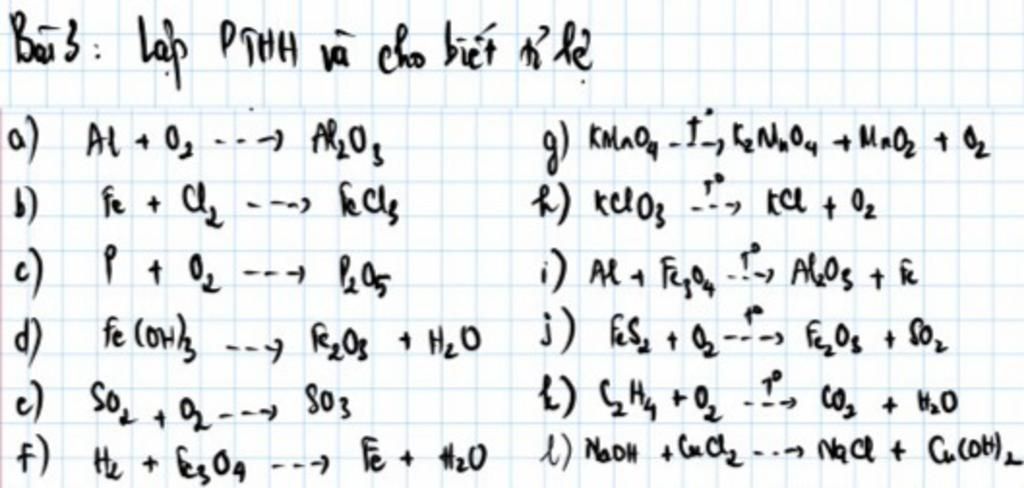 Bài 3: Lập PTHH và cho biết tỉ lệ
a) Al + O₂ ---> Al₂O₃
b) Fe + Cl₂ ---> FeCl₃
c) P + O₂ ---> P₂O₅
d) Fe(OH)₃ ---> Fe₂O₃ + H₂O
e) SO₂ + O₂ ---> SO₃
f) H₂ + Fe₃O₄ ---> Fe + H₂O
g) KMnO₄ --T°--> K₂MnO₄ + MnO₂ + O₂
h) KClO₃ --T°--> KCl + O₂
i) Al + Fe₃O₄ --T°--> Al₂O₃ + Fe
j) FeS₂ + O₂ --T°--> Fe₂O₃ + SO₂
k) C₂H₄ + O₂ --T°--> CO₂ + H₂O
l) NaOH + CuCl₂ ---> NaCl + Cu(OH)₂